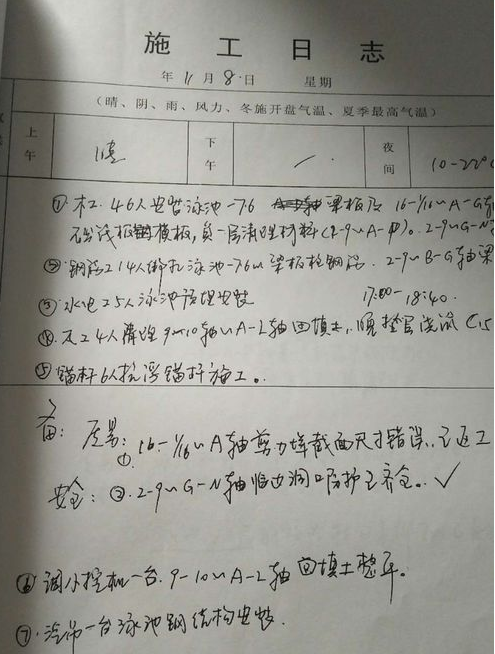 施工日志
年 11 月 8 日 星期
(晴、阴、雨、风力、冬施开盘气温、夏季最高气温)
上午 晴 下午 / 夜间 10-22°C
① 木工 46人安装泳池-7.6 梁板及 16-1/16~A-G轴
模板,负一层清理材料(2-9~A-轴)。2-9~G-N
② 钢筋工14人绑扎泳池-7.6m梁板柱钢筋。2-9~B-G轴梁
③ 水电工5人泳池预埋安装 17:00-18:40.
④ 瓦工4人清理9~10轴~A-L轴回填土,晚 浇筑C15
⑤ 锚杆6人抗浮锚杆施工。
备: 质量: ①. 16-1/16~A轴剪力墙截面尺寸错误,已返工
安全: ②. 2-9~G-N轴临边洞口防护已齐全。✓
⑥ 调小挖机一台. 9-10~A-L轴回填土整平。
⑦. 汽吊一台泳池钢结构安装.